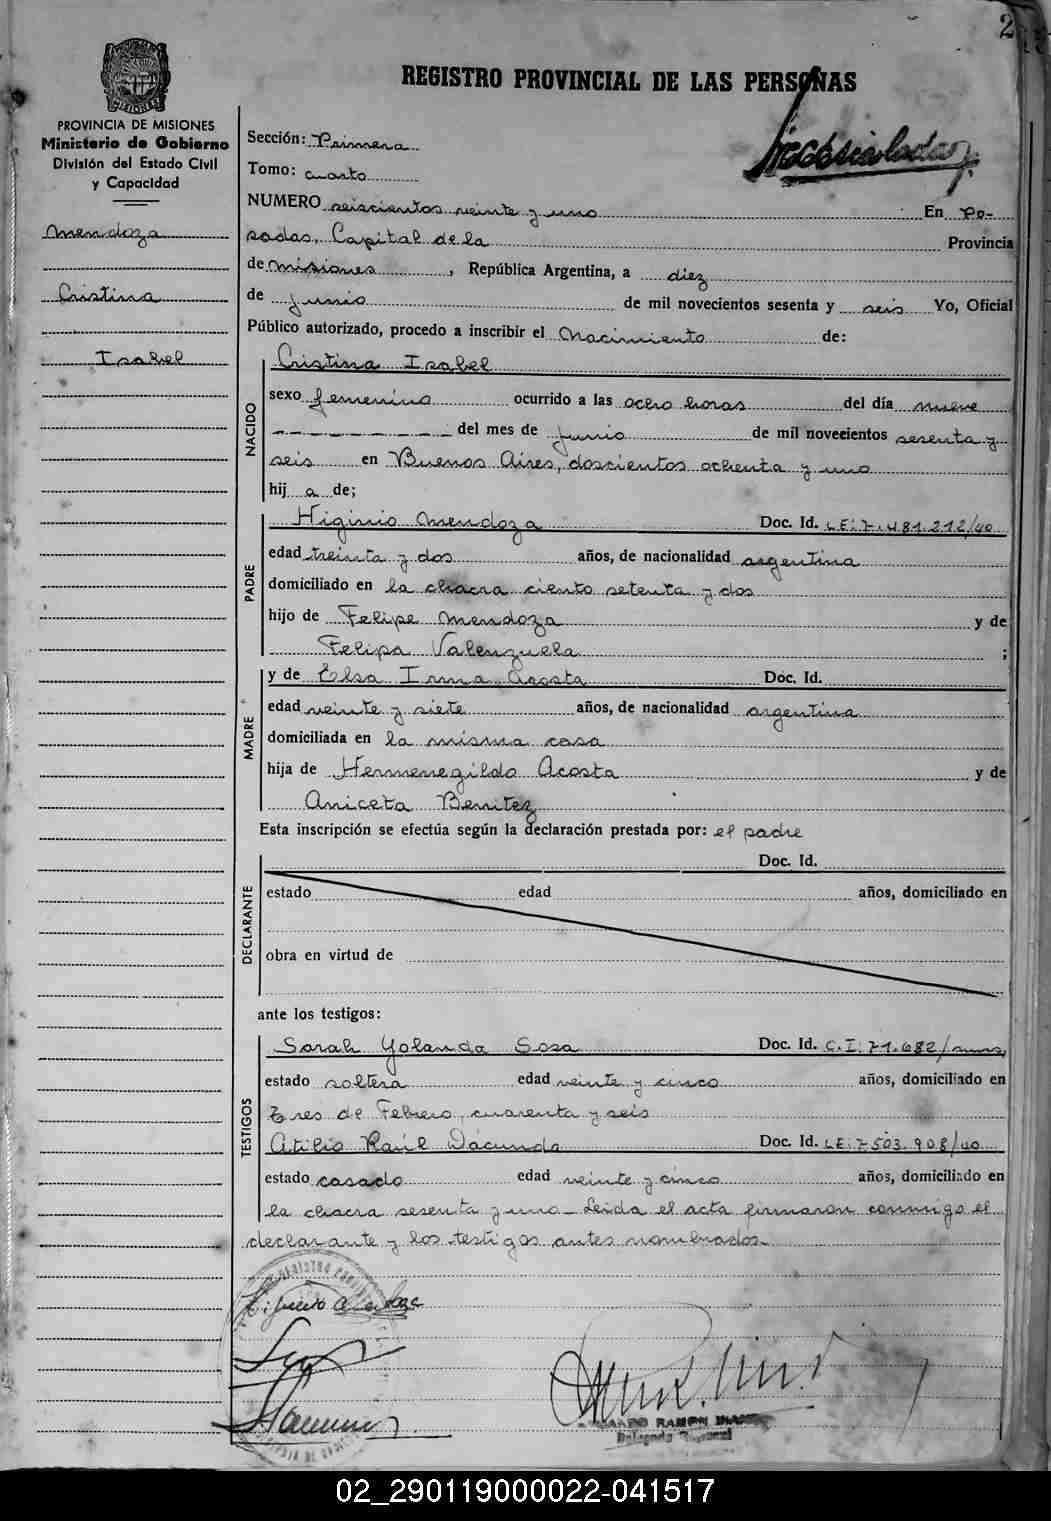 2
REGISTRO PROVINCIAL DE LAS PERSONAS
PROVINCIA DE MISIONES
Ministerio de Gobierno
División del Estado Civil
y Capacidad
Mendoza
Cristina
Isabel
Sección: Primera
Tomo: cuarto
NUMERO seiscientos veinte y uno En Po-
sadas, Capital de la Provincia
de misiones, República Argentina, a diez
de junio de mil novecientos sesenta y seis Yo, Oficial
Público autorizado, procedo a inscribir el Nacimiento de:
NACIDO
Cristina Isabel
sexo femenino ocurrido a las ocho horas del día nueve
del mes de junio de mil novecientos sesenta y
seis en Buenos Aires, doscientos ochenta y uno
hij a de;
PADRE
Higinio Mendoza Doc. Id. LE: 7.481.212/40
edad treinta y dos años, de nacionalidad argentina
domiciliado en la chacra ciento setenta y dos
hijo de Felipe Mendoza y de
Felipa Valenzuela ;
MADRE
y de Elsa Irma Acosta Doc. Id.
edad veinte y siete años, de nacionalidad argentina
domiciliada en la misma casa
hija de Hermenegildo Acosta y de
Aniceta Benitez
Esta inscripción se efectúa según la declaración prestada por: el padre
DECLARANTE
Doc. Id.
estado edad años, domiciliado en
obra en virtud de
ante los testigos:
TESTIGOS
Sarah Yolanda Sosa Doc. Id. C.I: 71.682/mns,
estado soltera edad veinte y cinco años, domiciliado en
Tres de Febrero, cuarenta y seis
Atilio Raúl Dacunda Doc. Id. LE: 7.503.908/40
estado casado edad veinte y cinco años, domiciliado en
la chacra sesenta y uno - Leida el acta firmaron conmigo el
declarante y los testigos antes nombrados.
Higinio Mendoza
RAMON
02_290119000022-041517